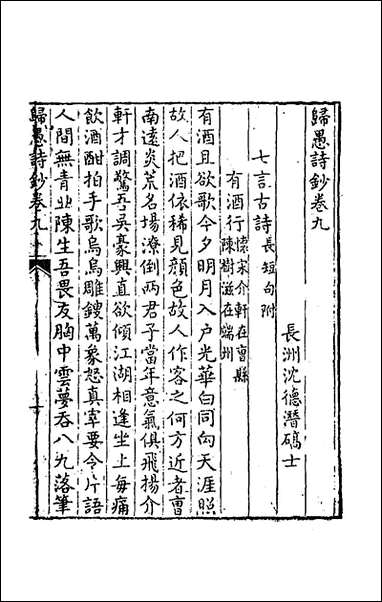 歸愚詩鈔卷九
長洲沈德潛碻士
七言古詩長短句附
有酒行懷宋介軒在曹縣陳樹滋在端州
有酒且欲歌今夕明月入户光華白同向天涯照
故人把酒依稀見顏色故人作客之何方近者曹
南遠炎荒名場潦倒两君子當年意氣俱飛揚介
軒才調驚吾吳豪興直欲傾江湖相逢坐上每痛
飲酒酣拍手歌烏烏雕鎪萬象怒真宰要令片語
人間無青北陳生吾畏友胸中雲夢吞八九落筆
歸愚詩鈔卷九
一